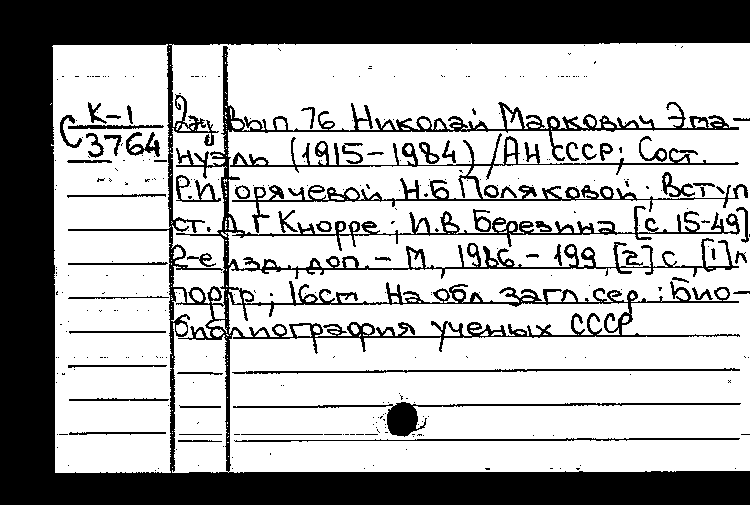 К-1
С 3764
2эк Вып. 76. Николай Маркович Эма-
нуэль (1915-1984) / АН СССР; Сост.
Р.И.Горячевой, Н.Б.Поляковой; Вступ
ст. Д.Г.Кнорре; И.В.Березина [с. 15-49]
2-е изд., доп. - М., 1986. - 199, [2] с., [1] л
портр.; 16см. На обл. загл. сер.: Био-
библиография ученых СССР.